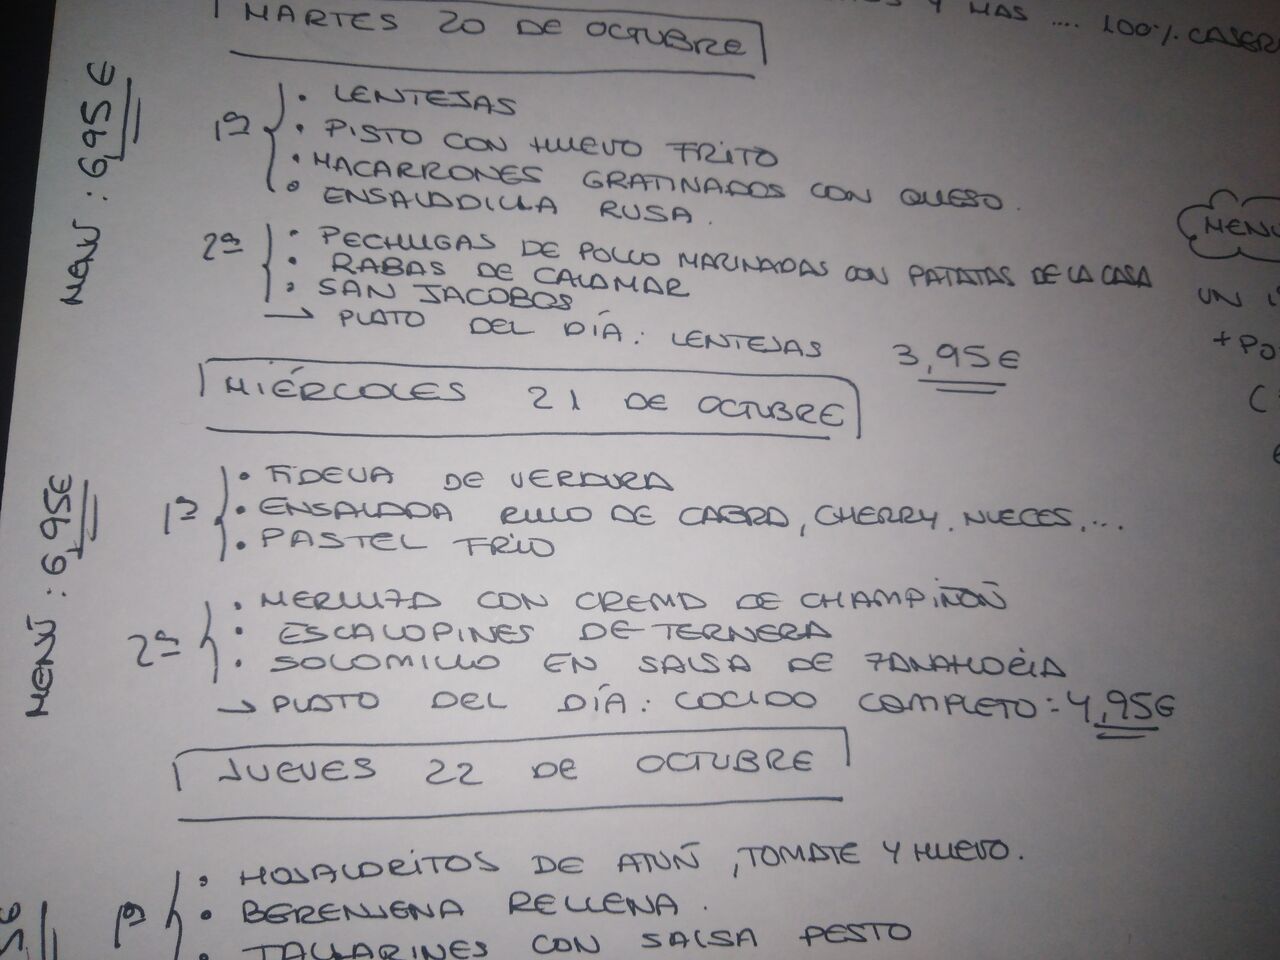 Y MAS .... 100% CASER
MARTES 20 DE OCTUBRE
MENÚ : 6,95€
1º
• LENTEJAS
• PISTO CON HUEVO FRITO
• MACARRONES GRATINADOS CON QUESO.
• ENSALADILLA RUSA.
2º
• PECHUGAS DE POLLO MARINADAS CON PATATAS DE LA CASA
• RABAS DE CALAMAR
• SAN JACOBOS
→ PLATO DEL DÍA: LENTEJAS 3,95€
MENÚ
UN
+ PO
(
MIÉRCOLES 21 DE OCTUBRE
MENÚ : 6,95€
1º
• FIDEUA DE VERDURA
• ENSALADA RULO DE CABRA, CHERRY, NUECES,...
• PASTEL FRIO
2º
• MERLUZA CON CREMA DE CHAMPIÑOÑ
• ESCALOPINES DE TERNERA
• SOLOMILLO EN SALSA DE ZANAHORIA
→ PLATO DEL DÍA: COCIDO COMPLETO: 4,95€
JUEVES 22 DE OCTUBRE
5€
1º
• HOJALDRITOS DE ATUÑ, TOMATE Y HUEVO.
• BERENJENA RELLENA.
• TALLARINES CON SALSA PESTO